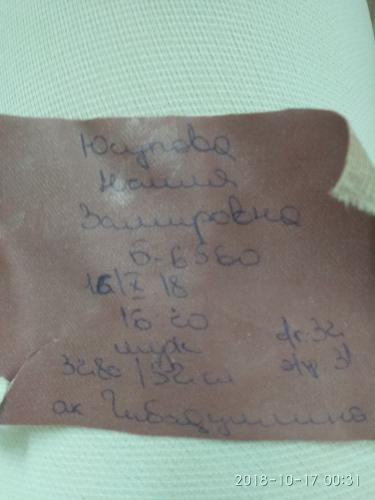 Юсупова
Наиля
Замировна
Б-6560
16/X 18
16-20
муж
ог. 32
3280 / 52 см
ак. Гибадуллина
2018-10-17 00:31